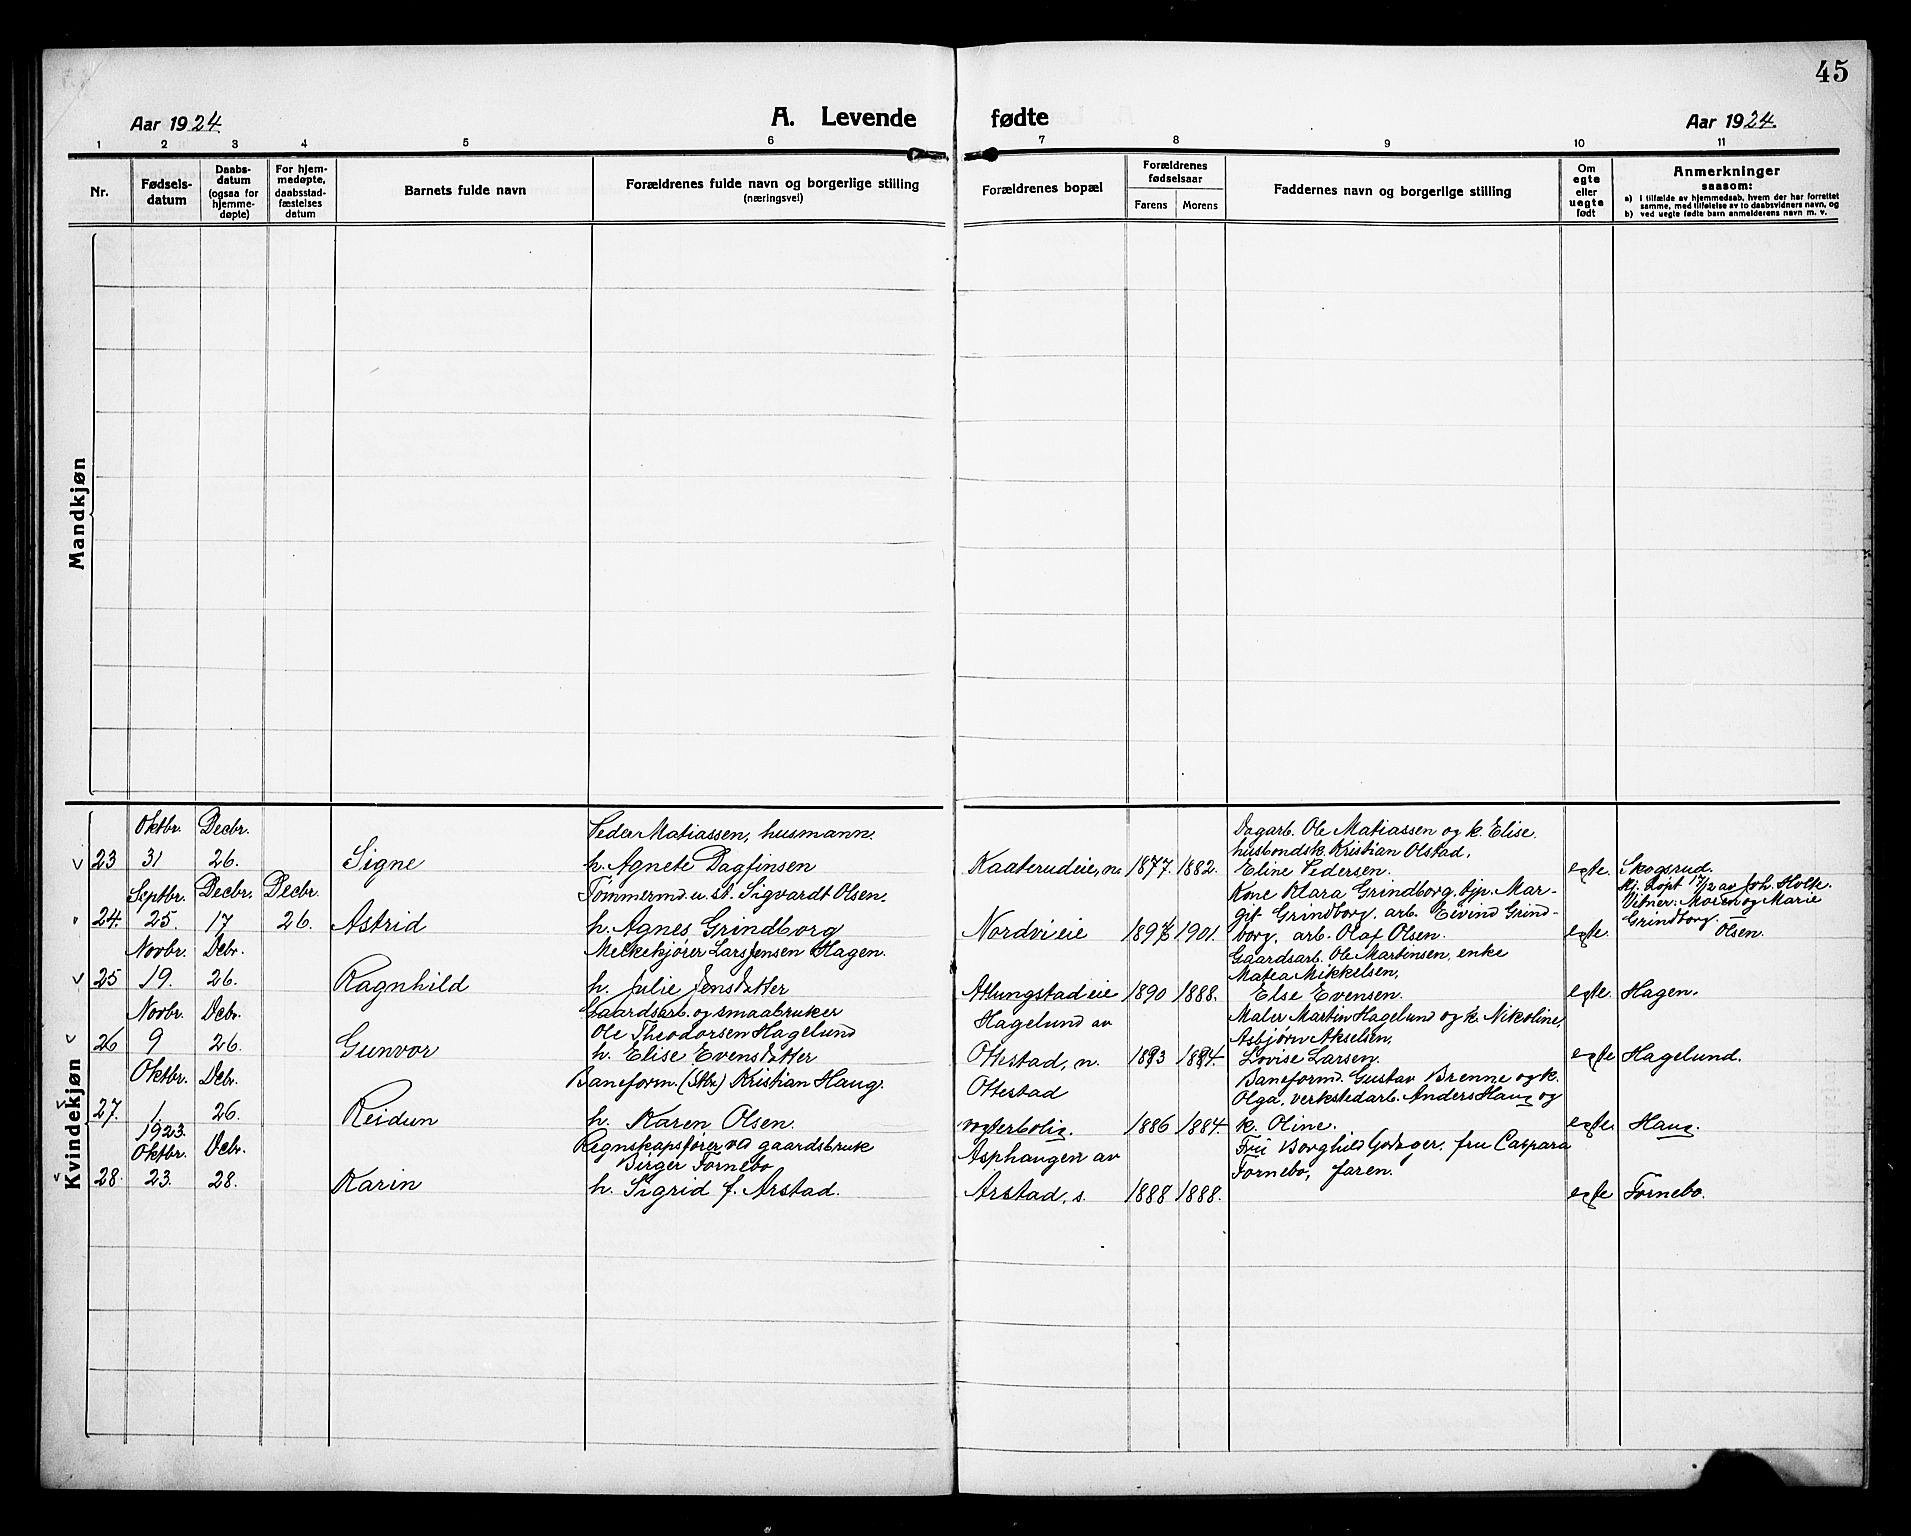 45
Aar 1924.
A. Levende
fødte
Aar 1924.
1 2 3 4 5 6 7 8 9 10 11
Nr.
Fødsels-
datum
Daabs-
datum
(ogsaa for
hjemme-
døpte)
For hjem-
medøpte,
daabsstad-
fæstelses
datum
Barnets fulde navn
Forældrenes fulde navn og borgerlige stilling
(næringsvei)
Forældrenes bopæl
Forældrenes
fødselsaar
Farens Morens
Faddernes navn og borgerlige stilling
Om
egte
eller
uegte
født
Anmerkninger
saasom:
a) i tilfælde av hjemmedaab, hvem der har forrettet
samme, med tilføielse av to daabsvidners navn, og
b) ved uegte fødte barn anmelderens navn m. v.
Mandkjøn
Kvindekjøn
Oktbr. Decbr.
23 31 26.
Signe
Peder Matiassen, husmann.
h. Agnete Dagfinsen
Kaaterudeie, n.
1877. 1882.
Dagarb. Ole Matiassen og k. Elise.
husbondsk. Kristian Olstad,
Eline Pedersen.
egte.
Skogsrud.
Septbr. Decbr. Decbr.
24. 25. 17 26.
Astrid
Tømmermd u. st. Sigvardt Olsen.
h. Agnes Grindborg
Nordvieie
1897 1901.
Kone Klara Grindborg, pp. Mar-
git Grindborg, arb. Eivind Grind-
borg, arb. Olaf Olsen.
egte.
Hj. døpt 17/12 av Joh. Holte.
Vitner: Moren og Marie
Grindborg.
Olsen.
Novbr. Debr.
25 19. 26.
Ragnhild
Melkekjører Lars Jensen Hagen.
h. Julie Jensdatter
Atlungstadeie
1890 1888.
Gaardsarb. Ole Martinsen, enke
Matea Mikkelsen,
Else Evensen.
egte.
Hagen.
Novbr. Debr.
26 9 26.
Gunvor
Gaardsarb. og smaabruker
Ole Theodorsen Hagelund
h. Elise Evensdatter
Hagelund av
Ottestad, n.
1893 1894.
Maler Martin Hagelund og k. Nikoline,
Asbjørn Akselsen,
Lovise Larsen.
egte
Hagelund.
Oktbr. Debr.
27. 1 26.
Reidun
Baneform. (Stbr) Kristian Haug.
h. Karen Olsen.
Ottestad
vogterbolig.
1886 1884.
Baneformd. Gustav Brenne og k.
Olga, verkstedarb. Anders Haug og
k. Oline.
egte.
Haug.
1923.
Oktbr. Debr.
28. 23. 28.
Karin
Regnskapsfører va gaardsbruk
Birger Fornebo
h. Sigrid f. Arstad.
Asphaugen av
Arstad, s.
1888 1888.
Frü Borghild Godager, fru Caspara
Fornebo, faren.
egte
Fornebo.